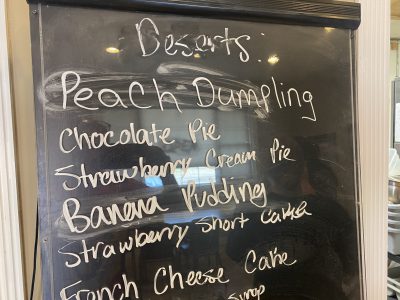 Deserts:
Peach Dumpling
Chocolate Pie
Strawberry Cream Pie
Banana Pudding
Strawberry Short Cake
French Cheese Cake
syrup